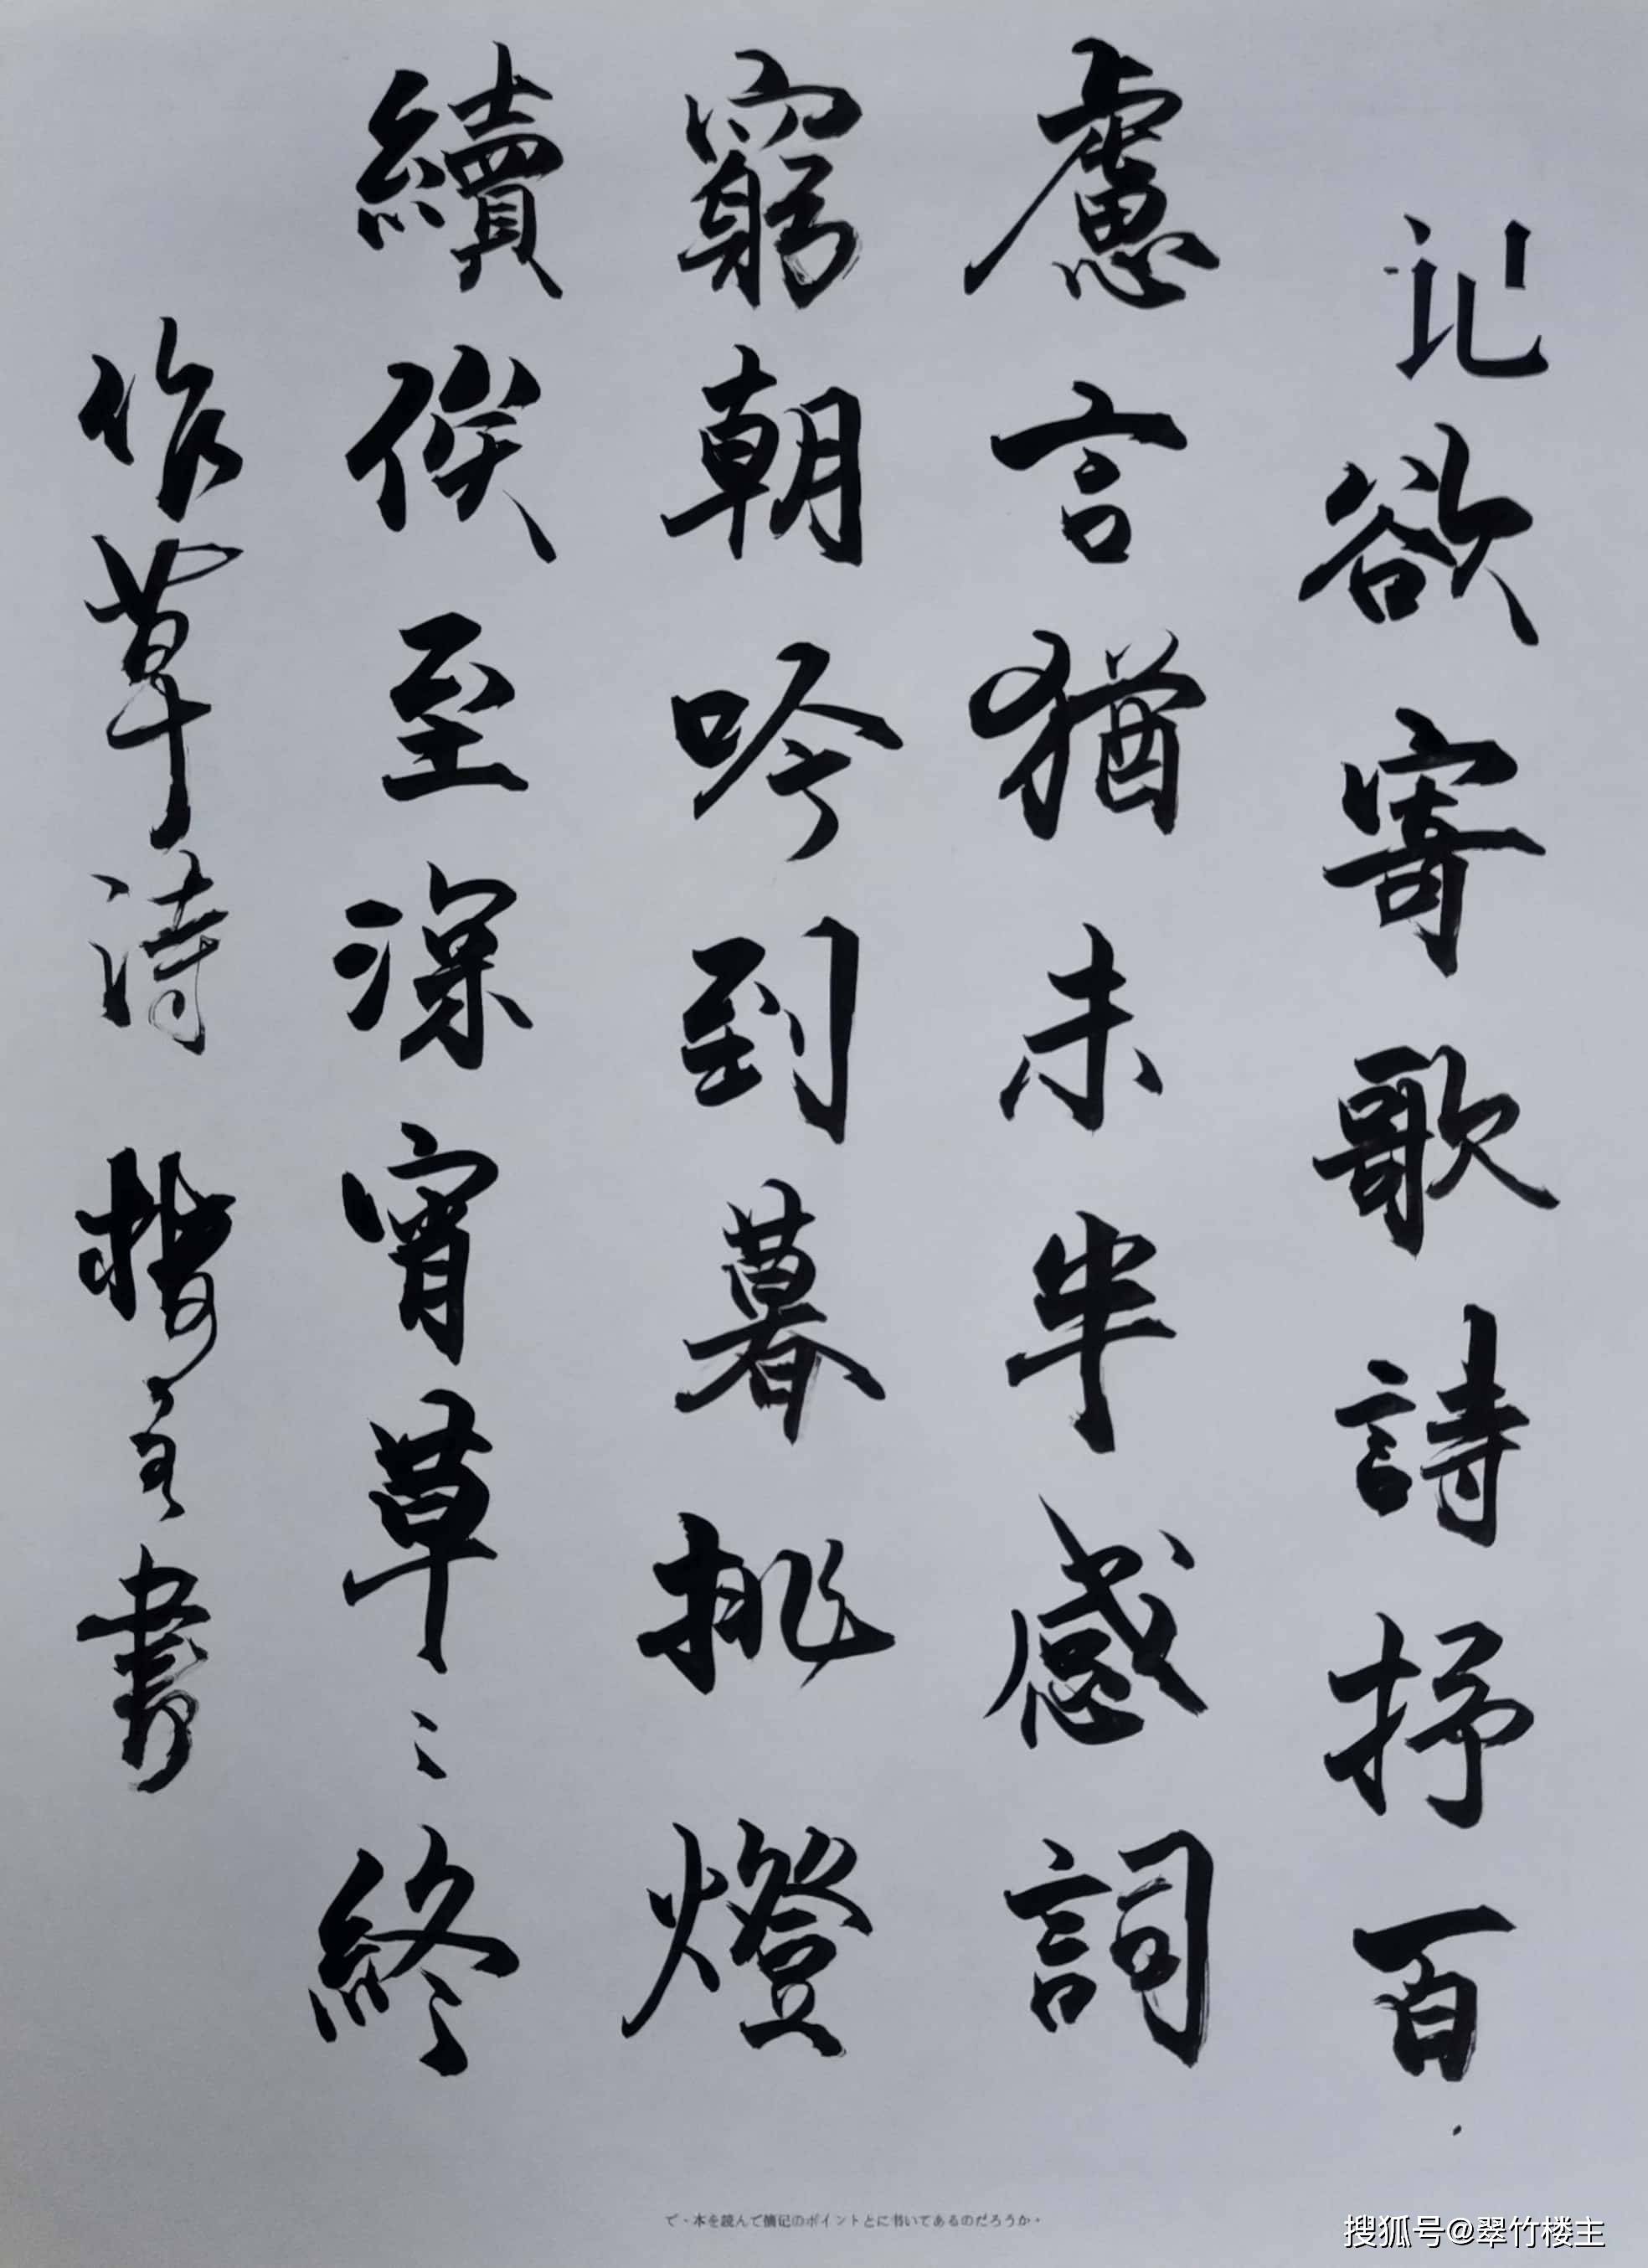 记欲寄歌詩抒百
慮言猶未半感詞
窮朝吟到暮挑燈
續俟至深宵草〻終
作草诗 楼主書
で・本を読んで摘记のポイントとに书いてあるのだろうか・
搜狐号@翠竹楼主